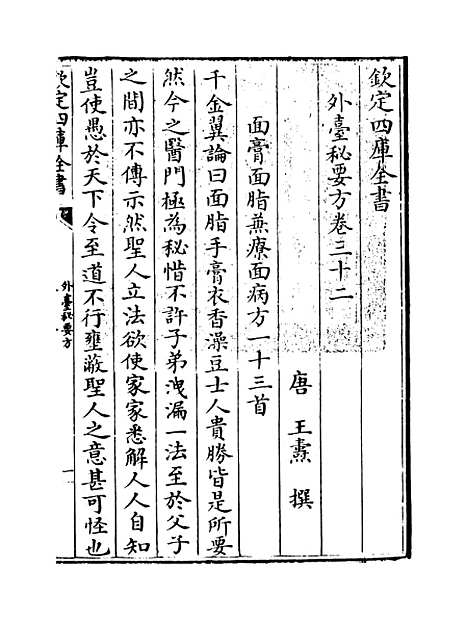 欽定四庫全書
外臺秘要方卷三十二
唐 王燾 撰
面膏面脂兼療面病方一十三首
千金翼論曰面脂手膏衣香澡豆士人貴勝皆是所要
然今之醫門極為秘惜不許子弟洩漏一法至於父子
之間亦不傳示然聖人立法欲使家家悉解人人自知
豈使愚於天下令至道不行壅蔽聖人之意甚可怪也
欽定四庫全書
外臺秘要方
一